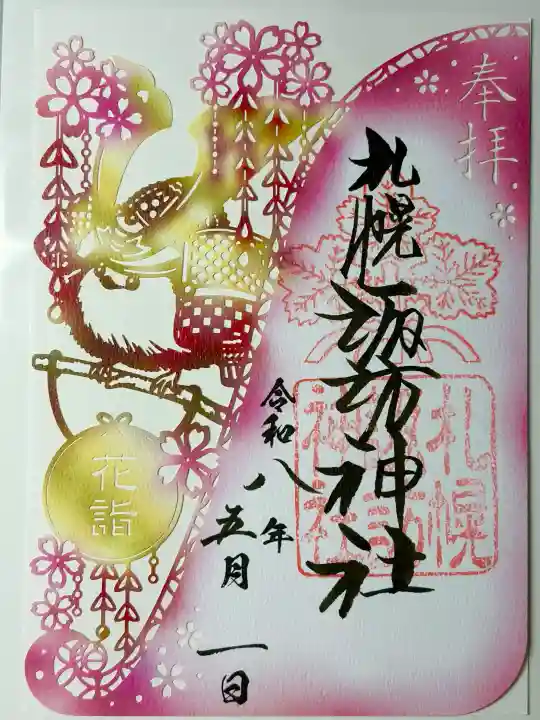 奉拝
札幌諏訪神社
札幌
諏訪
神社
令和八年
五月一日
花詣